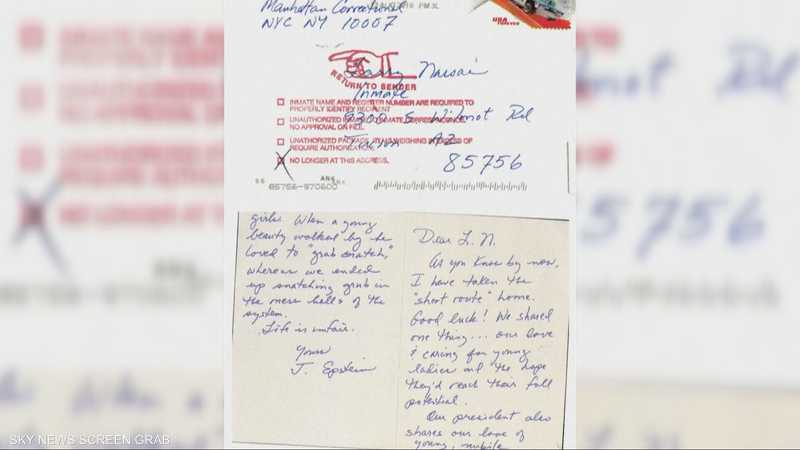 Manhattan Correctional
NYC NY 10007
PM 3L
USA
FOREVER
Larry Nassar
RETURN TO SENDER
Inmate
INMATE NAME AND REGISTER NUMBER ARE REQUIRED TO
PROPERLY IDENTIFY RECIPIENT
9300 S Wilmot Rd
UNAUTHORIZED
NO APPROVAL ON FILE.
Tucson AZ
UNAUTHORIZED WEIGHING OF
REQUIRE AUTHORIZATION.
85756
NO LONGER AT THIS ADDRESS.
ANK
85756-970600
girls. When a young
beauty walked by he
loved to "grab snatch,"
whereas we ended
up snatching grub in
the mess halls of the
system.
Life is unfair.
Yours
J. Epstein
Dear L. N.
As you know by now,
I have taken the
"short route" home.
Good luck! We shared
one thing... our love
& caring for young
ladies and the hope
they'd reach their full
potential.
Our president also
shares our love of
young, nubile
5756
SKY NEWS SCREEN GRAB